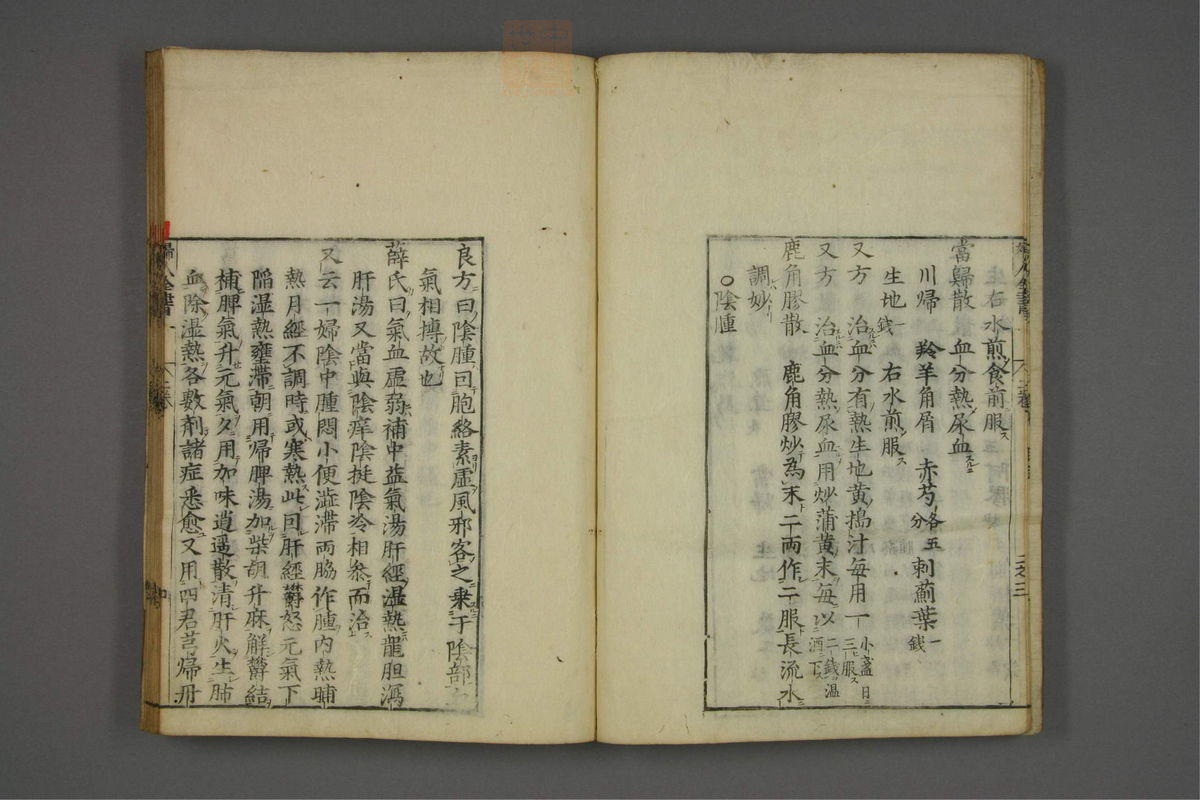 右水煎食前服ス
當歸散 血分熱尿血
川帰 羚羊角屑 赤芍各五分 刺薊葉一錢
生地一錢 右水煎服ス
又方 治血分有熱生地黄搗汁毎用一小盞日三服ス
又方 治血分熱尿血用炒蒲黄末毎以二錢温酒下ス
鹿角膠散 鹿角膠炒為末二両作二服長流水
調妙
○陰腫
良方曰陰腫回胞絡素虚風邪客之乗于陰部
氣相摶故也
薛氏曰氣血虚弱補中益氣湯肝經湿熱龍胆瀉
肝湯又當與陰痒陰挺陰冷相參而治
又云一婦陰中腫悶小便澁滞両脇作腫内熱晡
熱月經不調時或寒熱此回肝經欝怒元氣下
陥湿熱壅滞朝用帰脾湯加柴胡升麻解欝結
補脾氣升元氣夕用加味逍遥散清肝火生肺
血除湿熱各數剤諸症悉愈又用四君芎帰丹